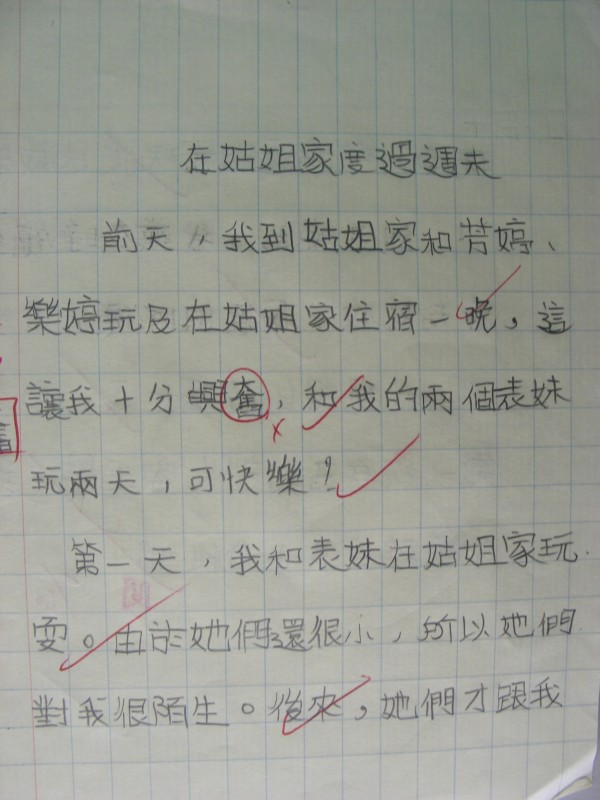 在姑姐家度過週末
前天，我到姑姐家和芳婷、
樂婷玩及在姑姐家住宿一晚，這
讓我十分興奮，和我的兩個表妹
玩兩天，可快樂！
第一天，我和表妹在姑姐家玩
耍。由於她們還很小，所以她們
對我很陌生。後來，她們才跟我